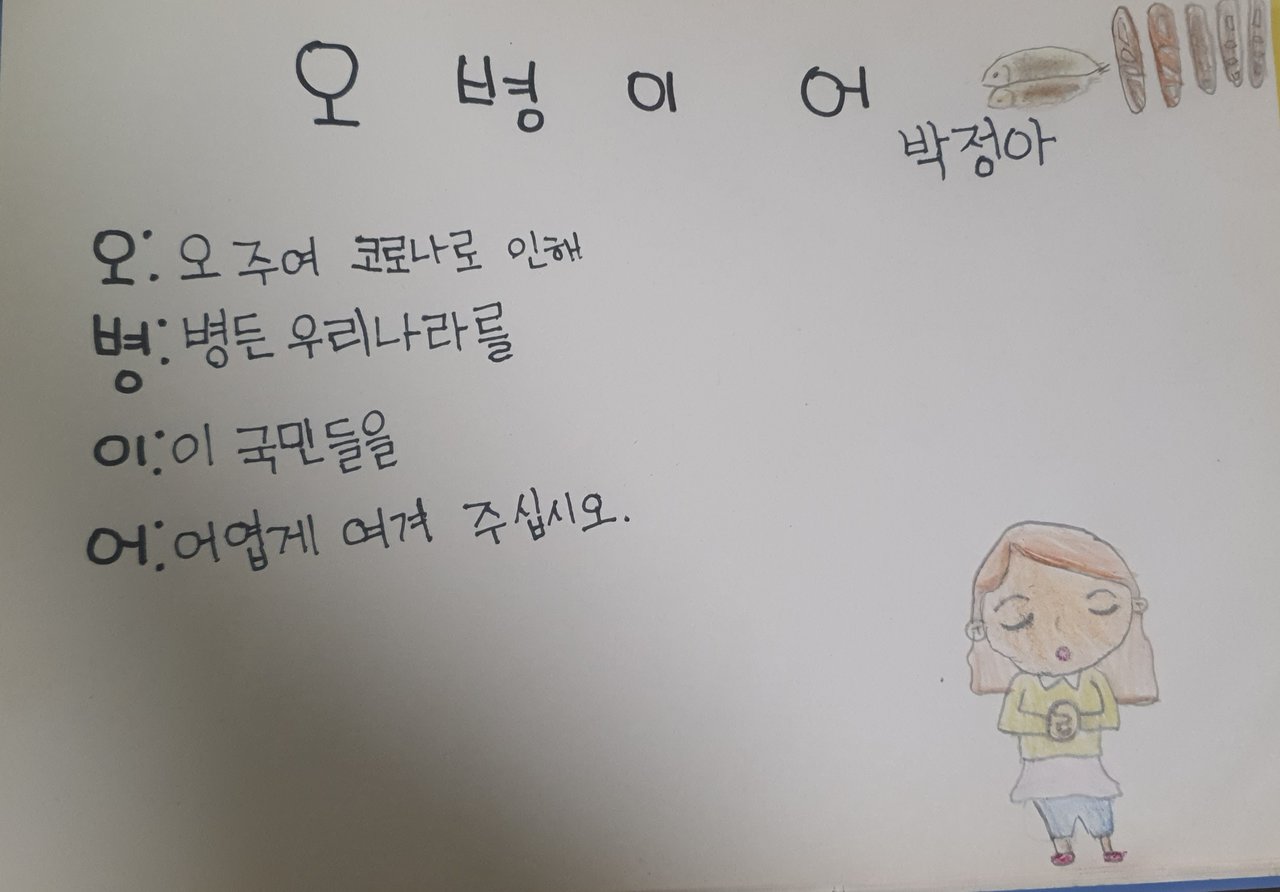 오 병 이 어
박정아
오: 오 주여 코로나로 인해
병: 병든 우리나라를
이: 이 국민들을
어: 어엽게 여겨 주십시오.